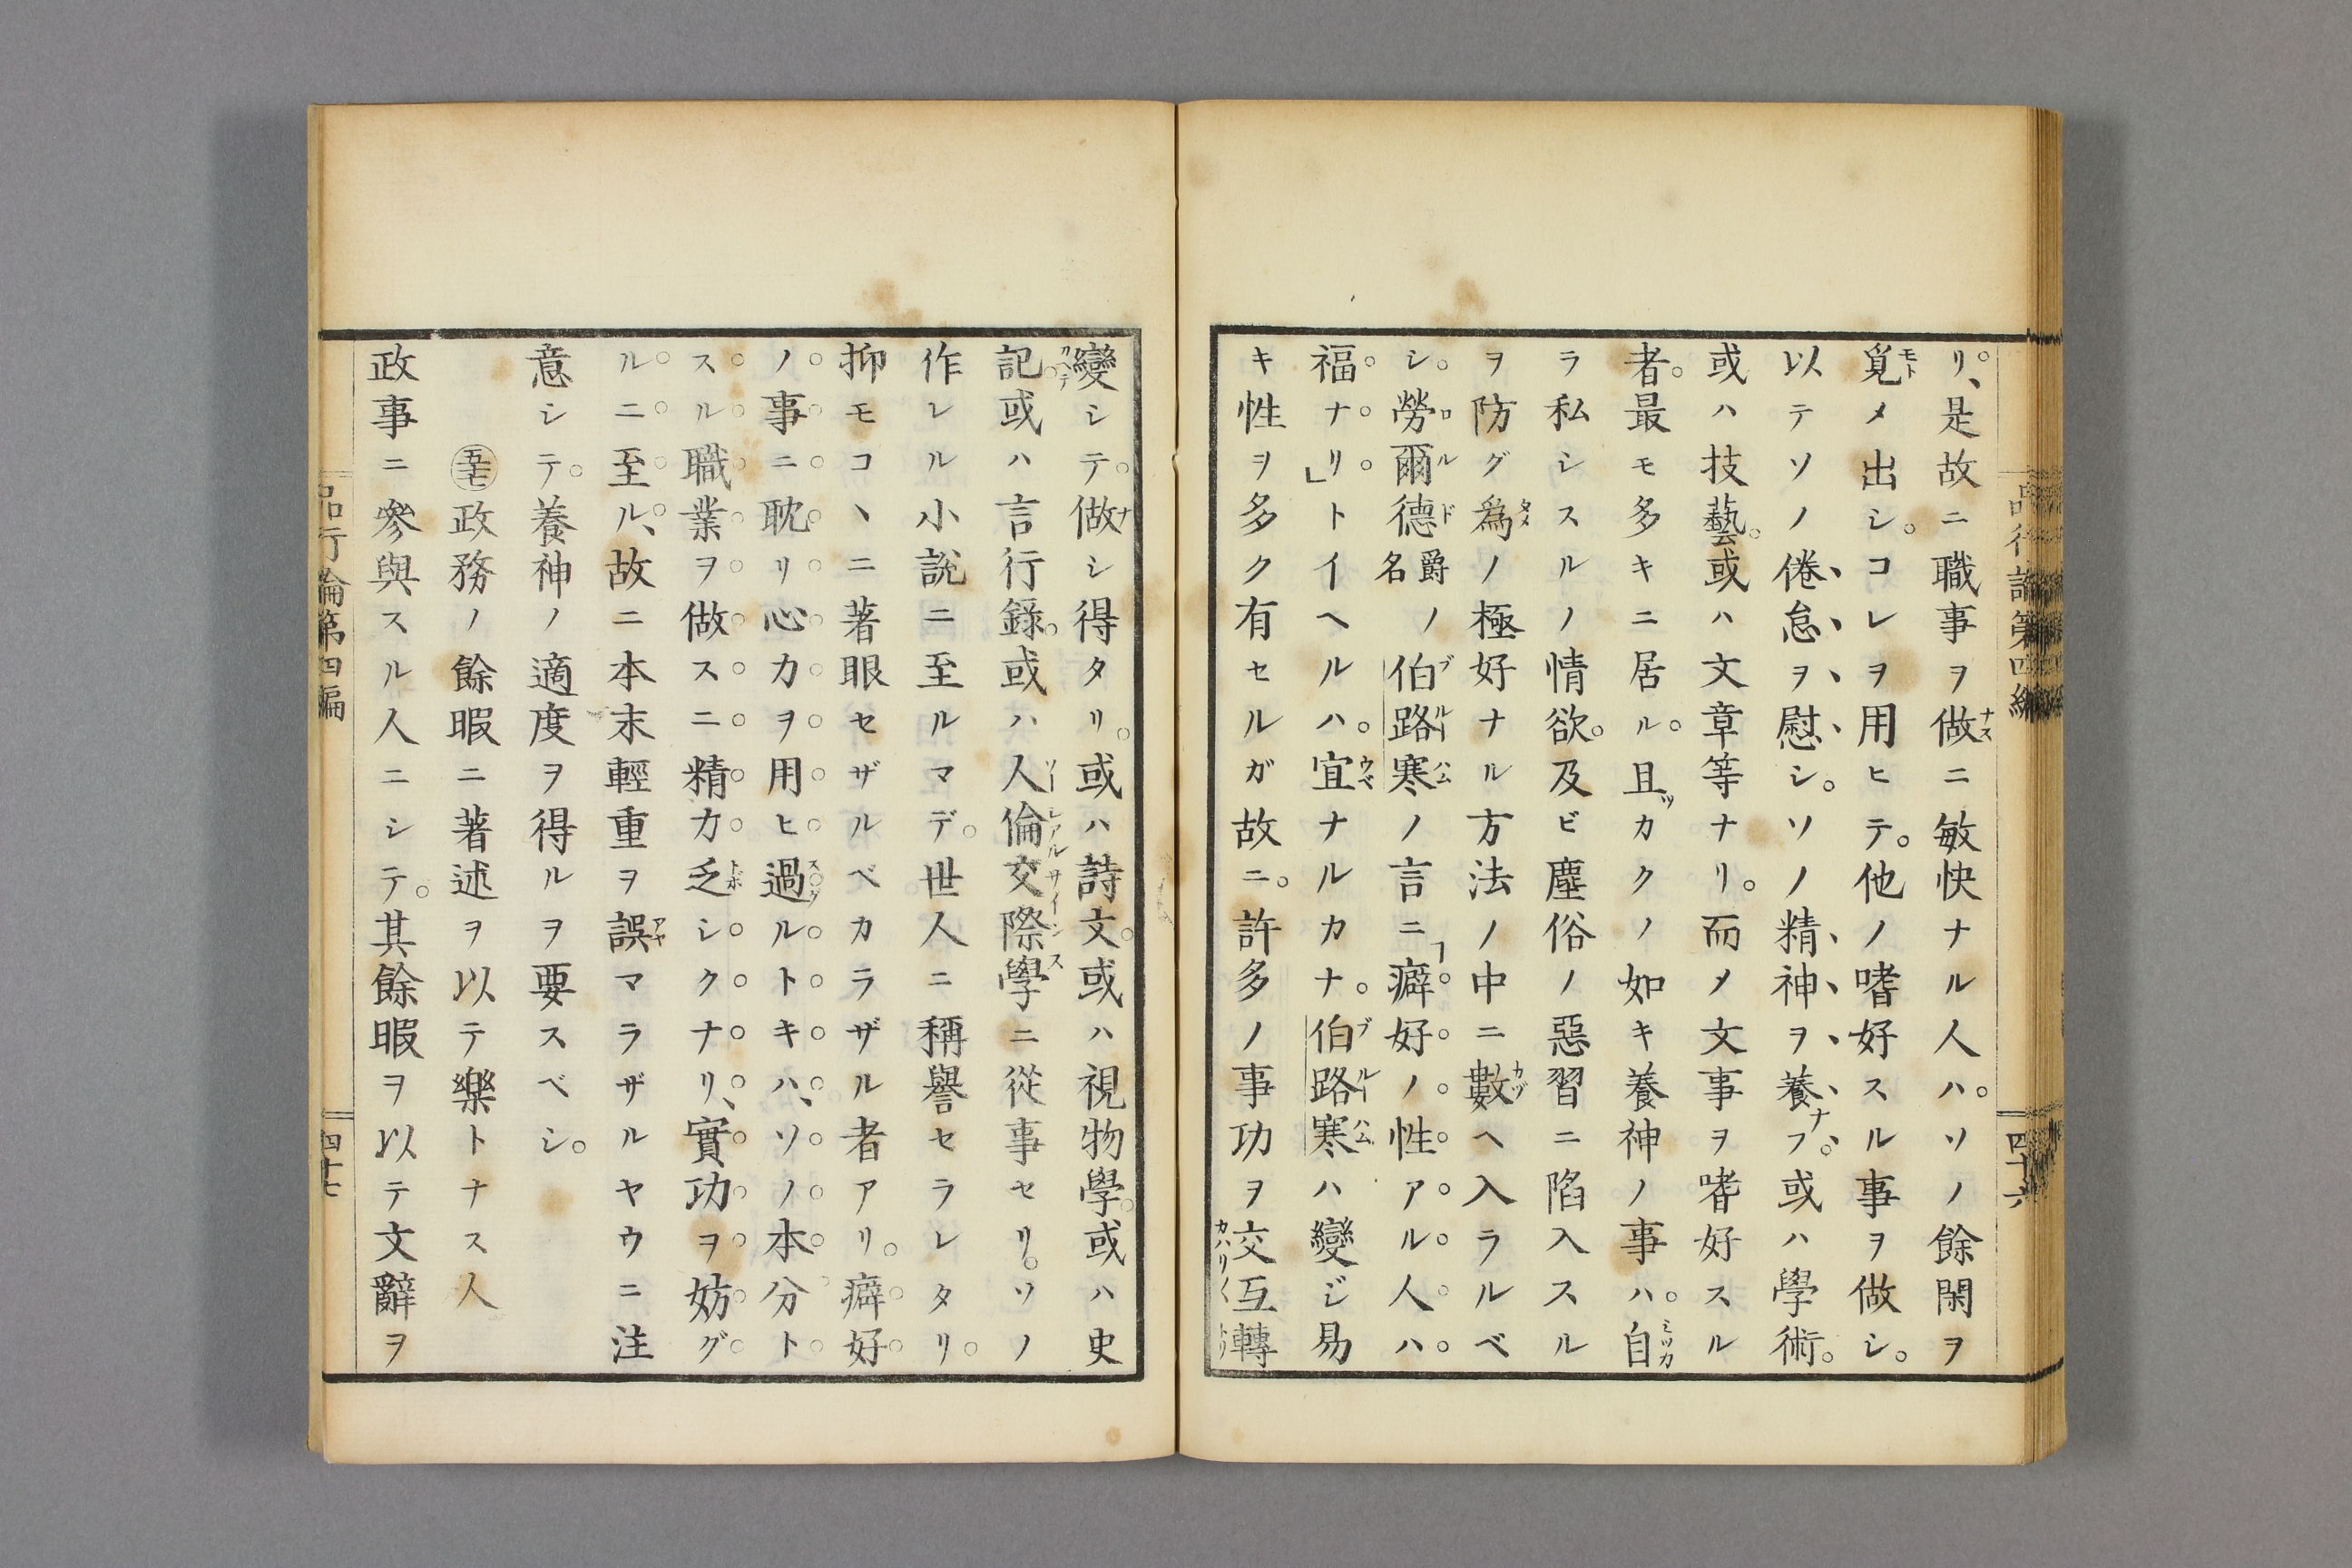 リ、是故ニ職事ヲ做ニ敏快ナル人ハ。ソノ餘閑ヲ
覓メ出シ。コレヲ用ヒテ。他ノ嗜好スル事ヲ做シ。
以テソノ倦怠ヲ慰シ。ソノ精神ヲ養フ。或ハ學術。
或ハ技藝。或ハ文章等ナリ。而メ文事ヲ嗜好スル
者。最モ多キニ居ル。且カクノ如キ養神ノ事ハ。自
ラ私シスルノ情欲。及ビ塵俗ノ惡習ニ陷入スル
ヲ防グ爲ノ極好ナル方法ノ中ニ數ヘ入ラルベ
シ。勞爾德爵名ノ伯路寒ノ言ニ「癖好ノ性アル人ハ
福ナリ」トイヘルハ。宜ナルカナ。伯路寒ハ變ジ易
キ性ヲ多ク有セルガ故ニ。許多ノ事功ヲ交互轉
品行論第四編 四十六
變シテ。做シ得タリ。或ハ詩文。或ハ視物學。或ハ史
記。或ハ言行錄。或ハ人倫交際學ニ從事セリ。ソノ
作レル小說ニ至ルマデ。世人ニ稱譽セラレタリ。
抑モコヽニ著眼セザルベカラザル者アリ。癖好
ノ事ニ耽リ心力ヲ用ヒ過ルトキハ、ソノ本分ト
スル職業ヲ做スニ精力乏シクナリ、實功ヲ妨グ
ルニ至ル、故ニ本末輕重ヲ誤マラザルヤウニ注
意シテ。養神ノ適度ヲ得ルヲ要スベシ。
政務ノ餘暇ニ著述ヲ以テ樂トナス人
政事ニ參與スル人ニシテ。其餘暇ヲ以テ文辭ヲ
品行論第四編 四十七